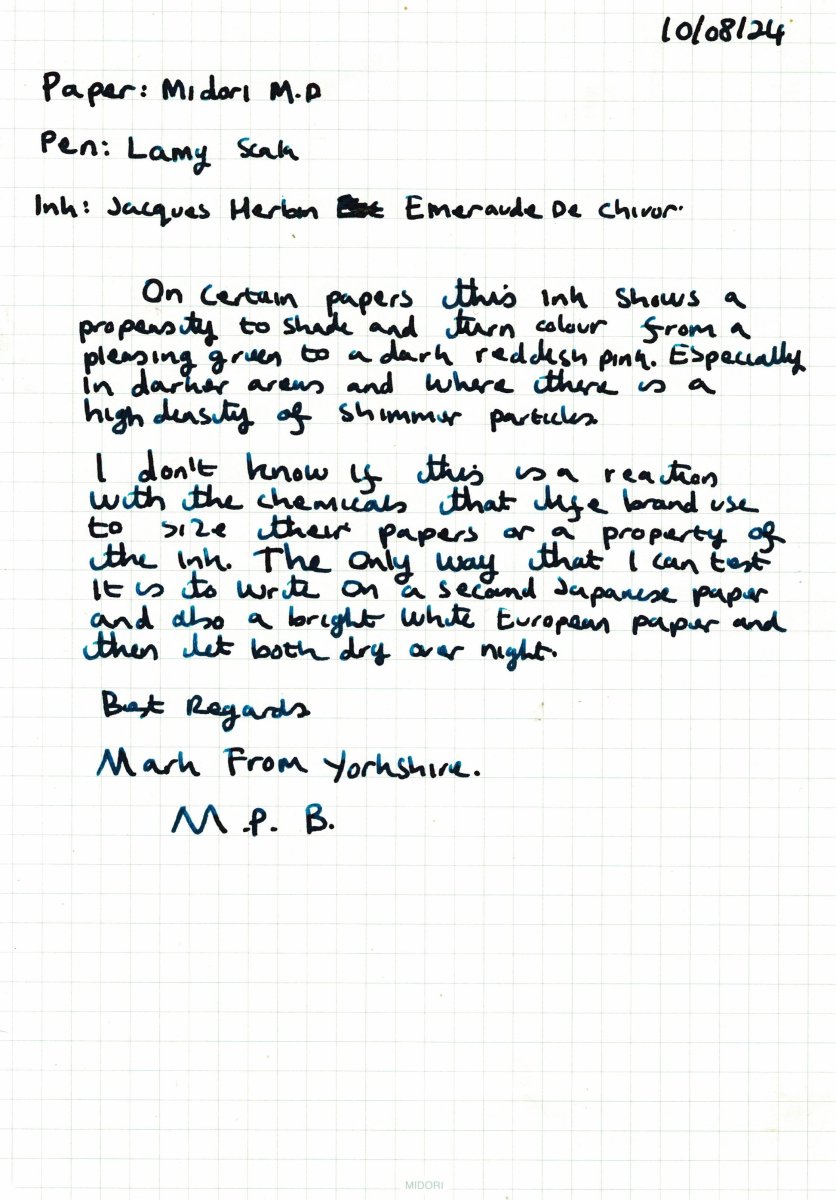 10/08/24
Paper: Midori M.D
Pen: Lamy Scala
Ink: Jacques Herbin Emeraude De Chivor.
On certain papers this ink shows a
propensity to shade and turn colour from a
pleasing green to a dark reddish pink. Especially
in darker areas and where there is a
high density of shimmer particles.
I don't know if this is a reaction
with the chemicals that life brand use
to size their papers or a property of
the ink. The only way that I can test
it is to write on a second Japanese paper
and also a bright white European paper and
then let both dry over night.
Best Regards
Mark From Yorkshire.
M.P. B.
MIDORI